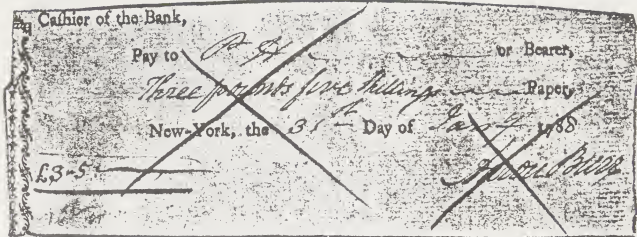 Cashier of the Bank,
Pay to P H or Bearer,
Three pounds five shillings Paper,
New-York, the 31st Day of Jany 1788
£3-5
Aaron Burr